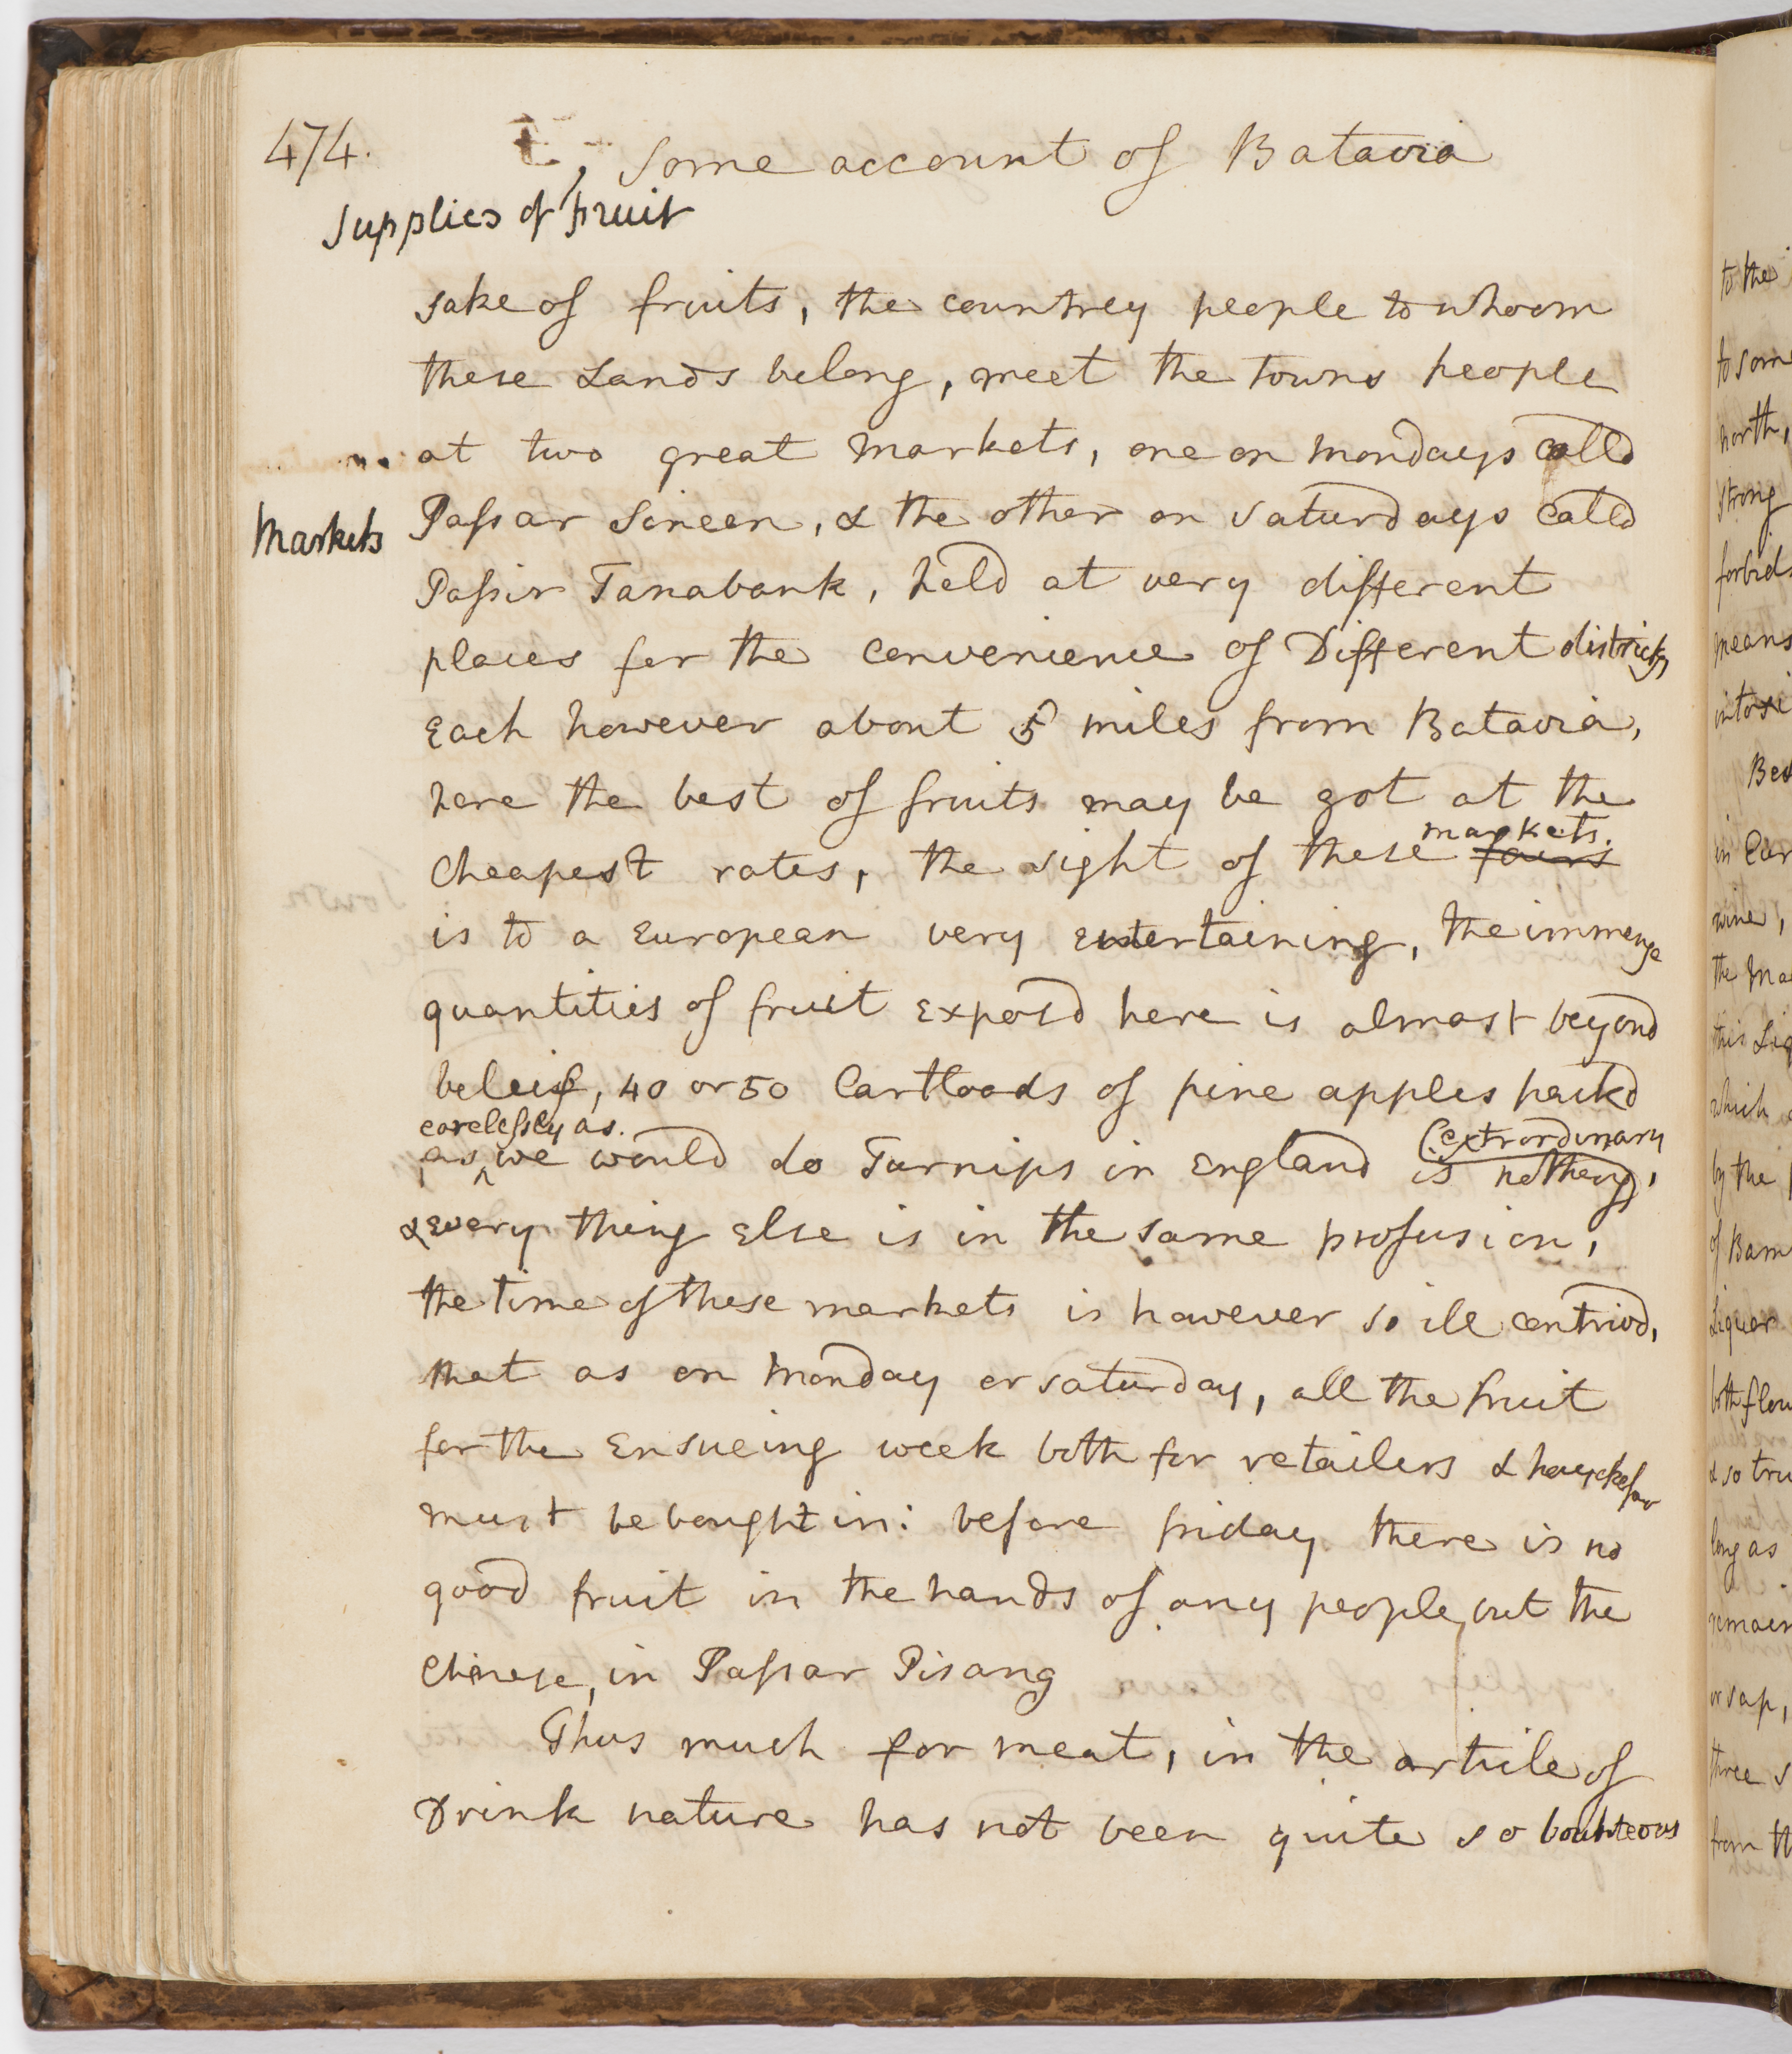 474.
Some account of Batavia
Supplies of fruit
sake of fruits, the countrey people to whoom
these Lands belong, meet the towns people
at two great Markets, one on mondays calld
Markets
Passar Sineen, & the other on Saturdays calld
Passir Tanabank, held at very different
places for the convenience of Different districts,
Each however about 5 miles from Batavia,
here the best of fruits may be got at the
markets.
cheapest rates, the sight of these fairs
is to a European very entertaining, the immense
quantities of fruit exposd here is almost beyond
beleif, 40 or 50 Cartloads of pine apples packd
carelessly as. (extrordinary
as we would do Turnips in England is nothing),
& Every thing Else is in the same profusion,
the time of these markets is however so ill contrivd,
that as on Monday or Saturday, all the fruit
for the Ensueing week both for retailers &
must be bought in: before friday there is no
good fruit in the hands of any people but the
Chinese, in Passar Pisang
Thus much for meat, in the article of
Drink nature has not been quite so bounteous
to the
to some
north,
strong
forbids
means
wine,
which
by the
of Bam
Liquor
long as
or sap,
three